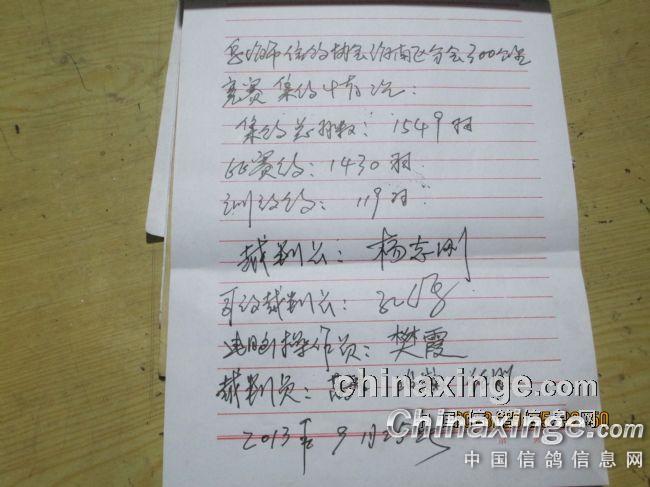 市信鸽协会渭南区分会300公里
竞赛集鸽情况:
集鸽总羽数: 1549羽
比赛鸽: 1430羽
训放鸽: 119羽
裁判长: 杨志刚
司放裁判长:
电脑操作员: 樊霞
裁判员:
chinaxinge.com
2013年9月25日
Chinaxinge.com
中国信鸽信息网